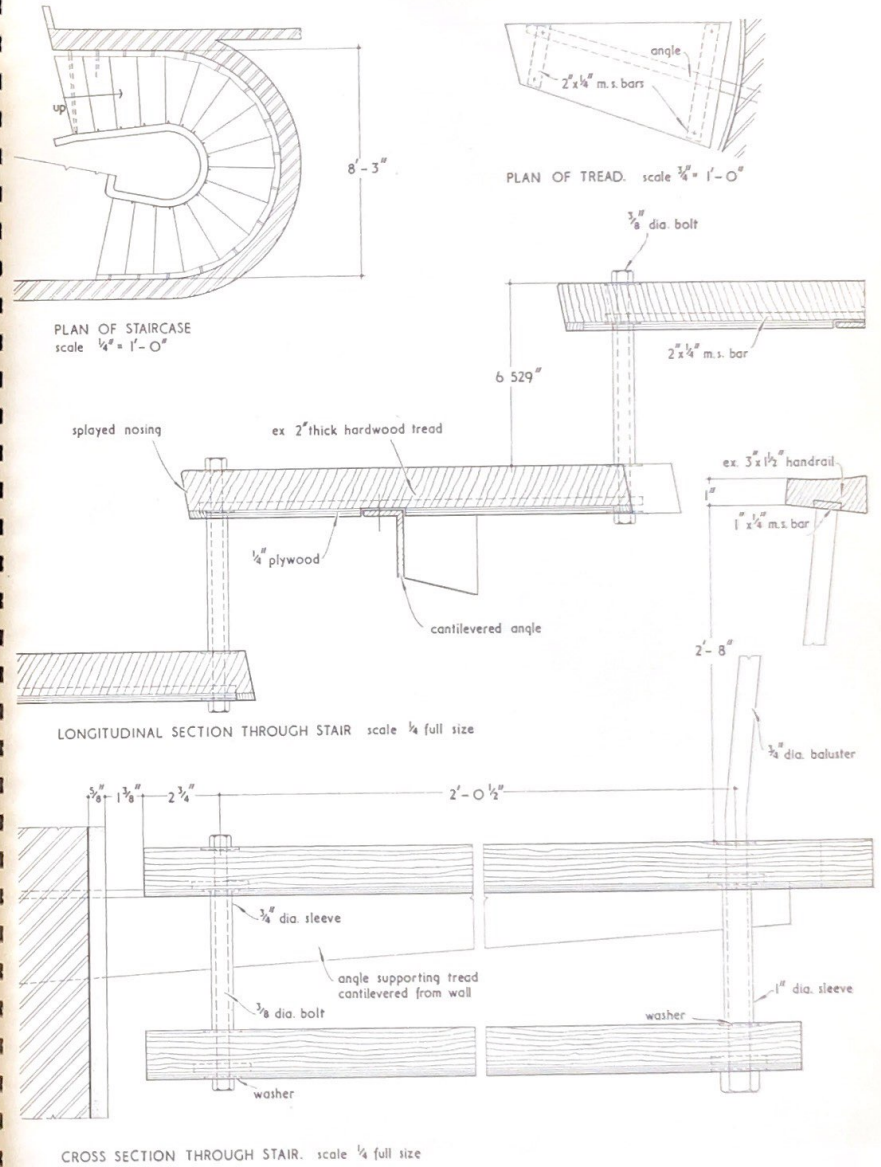 up
8'-3"
PLAN OF STAIRCASE
scale ¼" = 1'-0"
angle
2"x¼" m.s. bars
PLAN OF TREAD. scale ¾" = 1'-0"
⅜" dia. bolt
6 529"
2"x¼" m.s. bar
splayed nosing
ex 2" thick hardwood tread
¼" plywood
cantilevered angle
ex. 3"x1½" handrail
1"
1"x¼" m.s. bar
2'-8"
LONGITUDINAL SECTION THROUGH STAIR scale ¼ full size
¾" dia. baluster
⅝"
1⅜"
2¾"
2'-0½"
¾" dia. sleeve
angle supporting tread
cantilevered from wall
⅜ dia. bolt
1" dia. sleeve
washer
washer
CROSS SECTION THROUGH STAIR. scale ¼ full size